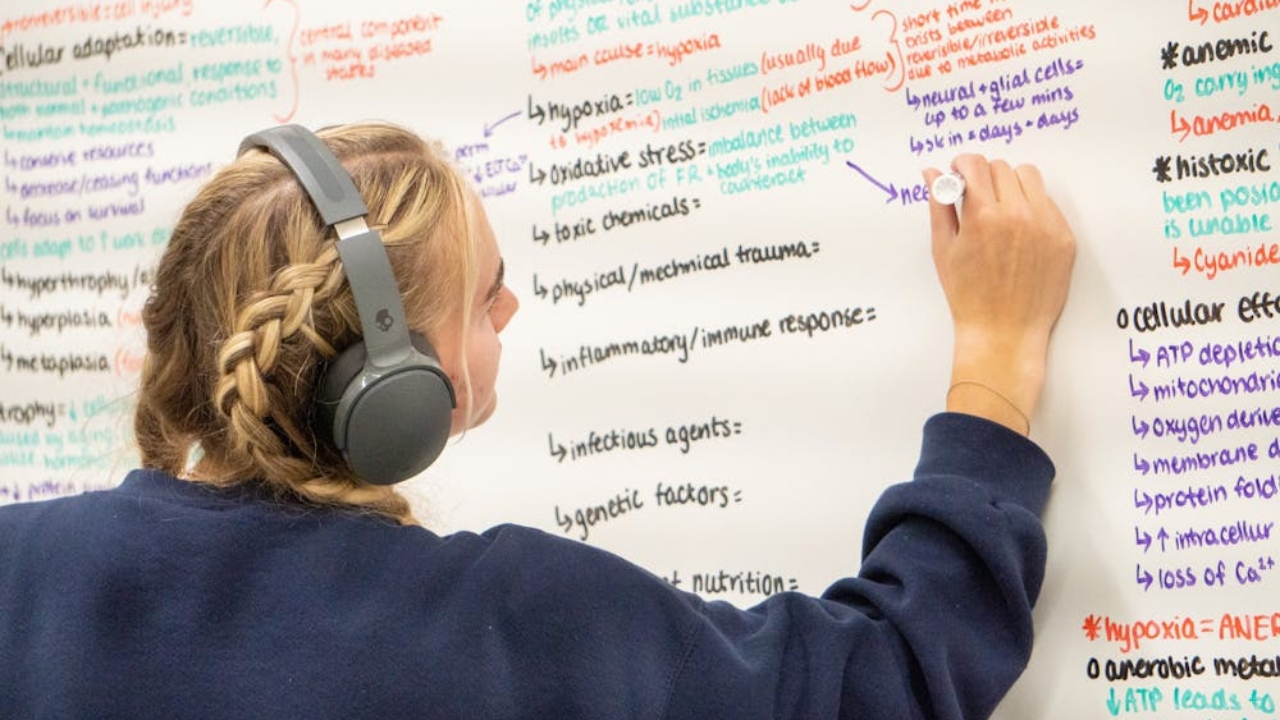 irreversible = cell injury
Cellular adaptation = reversible,
structural + functional response to
both normal + pathogenic conditions
↳ maintain homeostasis
↳ conserve resources
↳ decrease/ceasing functions
↳ focus on survival
cells adapt to ↑ work
↳ hyperthrophy/
↳ hyperplasia
↳ metaplasia
trophy = ↓
↓ protein
central component
in many diseased
states
of physical
insults OR vital substance
↳ main cause = hypoxia
↳ hypoxia = low O2 in tissues (usually due
to hypoxemia) initial ischemia (lack of blood flow)
↳ oxidative stress = imbalance between
production of FR + body's inability to
counteract
↳ toxic chemicals =
↳ physical/mechnical trauma =
↳ inflammatory/immune response =
↳ infectious agents =
↳ genetic factors =
nutrition =
perm
short time
exists between
reversible/irreversible
due to metabolic activities
↳ neural + glial cells =
up to a few mins
↳ skin = days - days
nee
↳ cardia
* anemic
O2 carrying
↳ anemia,
* histoxic
been poiso
is unable
↳ Cyanide
o cellular effe
↳ ATP depletio
↳ mitochondria
↳ oxygen derive
↳ membrane d
↳ protein fold
↳ ↑ intracellur
↳ loss of Ca2+
* hypoxia = ANER
o anerobic metab
↓ ATP leads to